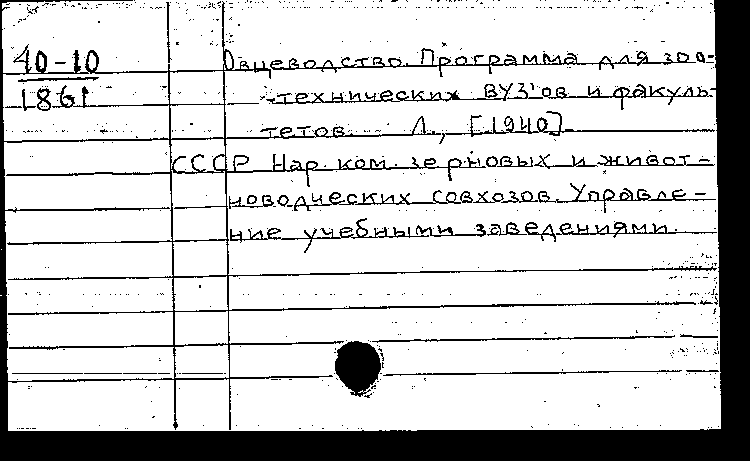 40-10
1861
Овцеводство. Программа для зоо-
технических ВУЗ'ов и факуль-
тетов. Л., [1940]
СССР Нар. ком. зерновых и живот-
новодческих совхозов. Управле-
ние учебными заведениями.